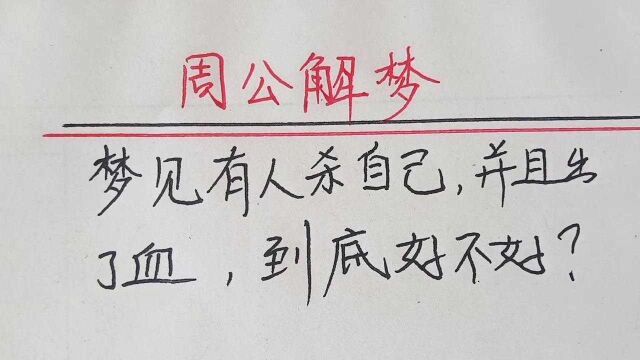 周公解梦
梦见有人杀自己,并且出
了血,到底好不好?